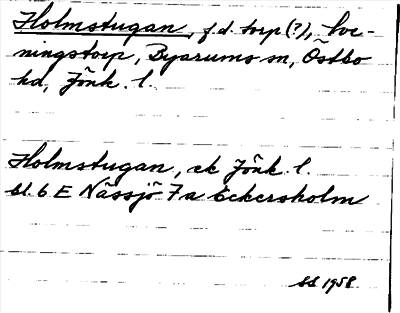 Holmstugan, f.d. torp(?), Hve-
ningstorp, Byarums sn, Östbo
hd, Jönk. l.
Holmstugan, ek Jönk. l.
bl. 6 E Nässjö 7a Eckersholm
SS 1958